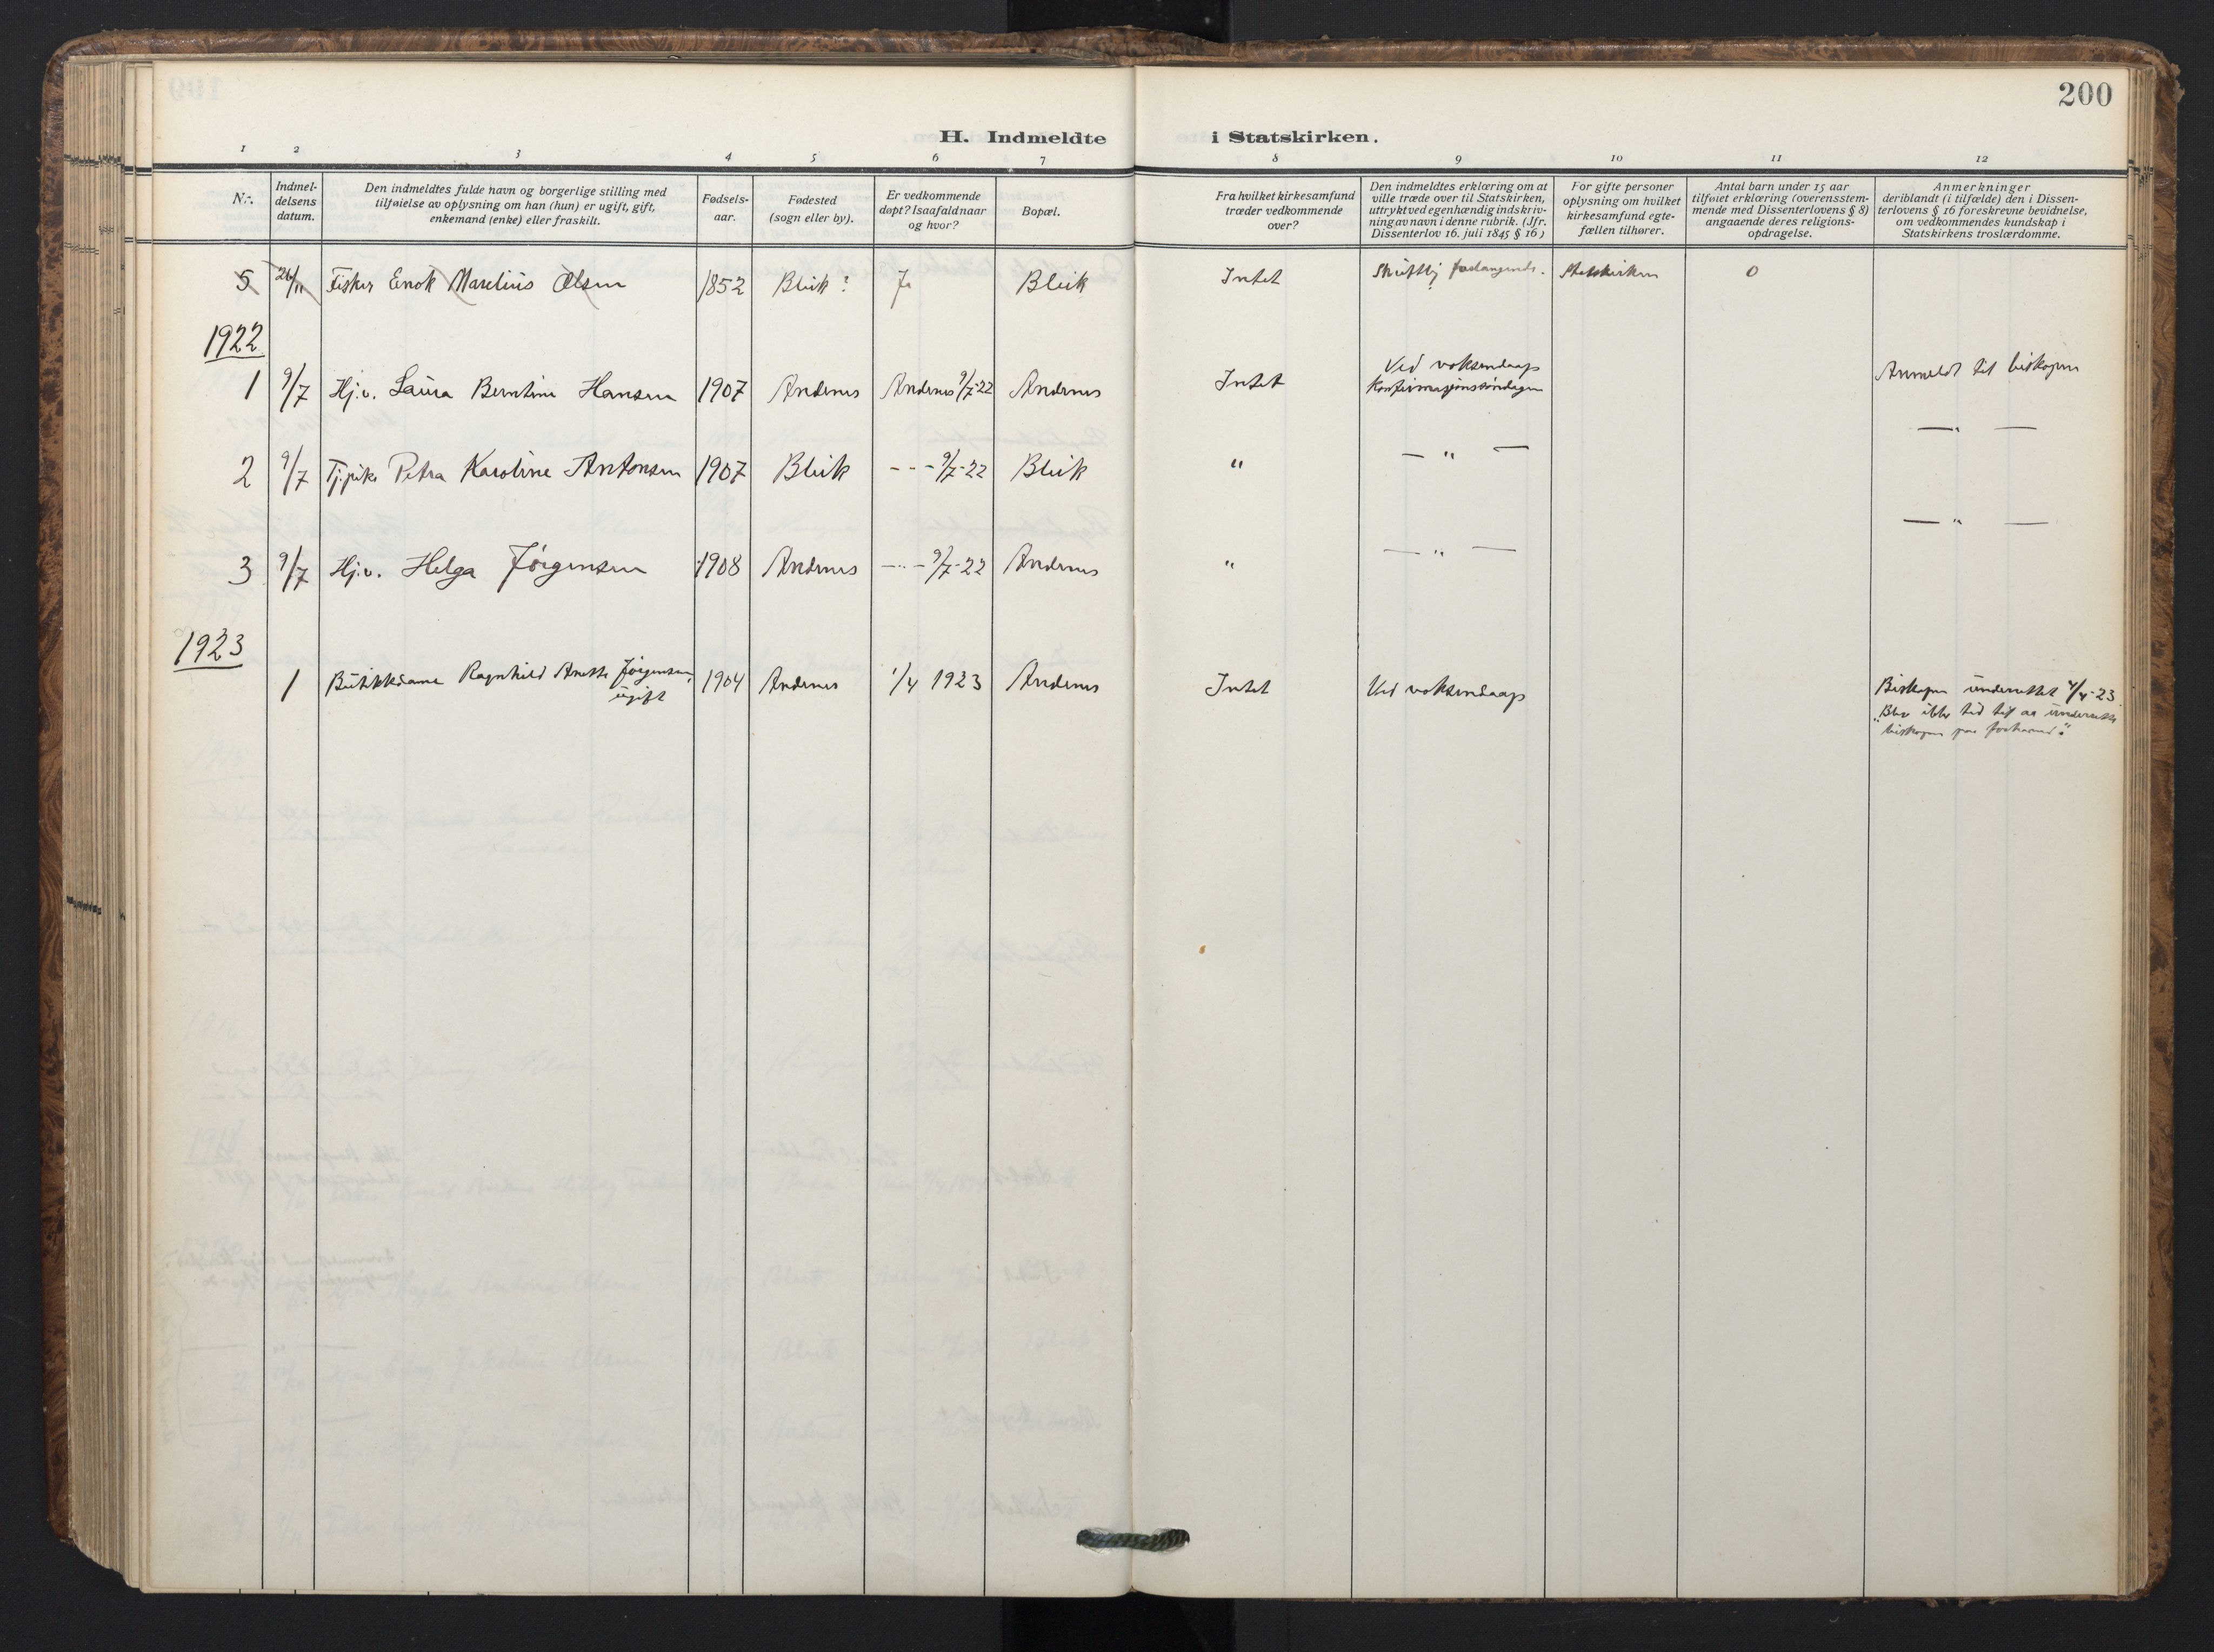 200
H. Indmeldte i Statskirken.
1 2 3 4 5 6 7 8 9 10 11 12
Nr.
Indmel-
delsens
datum.
Den indmeldtes fulde navn og borgerlige stilling med
tilføielse av oplysning om han (hun) er ugift, gift,
enkemand (enke) eller fraskilt.
Fødsels-
aar.
Fødested
(sogn eller by).
Er vedkommende
døpt? Isaafald naar
og hvor?
Bopæl.
Fra hvilket kirkesamfund
træder vedkommende
over?
Den indmeldtes erklæring om at
ville træde over til Statskirken,
uttrykt ved egenhændig indskriv-
ning av navn i denne rubrik. (Jfr.
Dissenterlov 16. juli 1845 § 16)
For gifte personer
oplysning om hvilket
kirkesamfund egte-
fællen tilhører.
Antal barn under 15 aar
tilføiet erklæring (overensstem-
mende med Dissenterlovens § 8)
angaaende deres religions-
opdragelse.
Anmerkninger
deriblandt (i tilfælde) den i Dissen-
terlovens § 16 foreskrevne bevidnelse,
om vedkommendes kundskap i
Statskirkens troslærdomme.
5 26/11 Fisker Enok Marelius Olsen 1852 Bleik? Ja Bleik Intet Skriftlig forlangende. Statskirken 0
1922
1 9/7 Hj.v. Laura Berntine Hansen 1907 Andenes Andenes 9/7-22 Andenes Intet Ved voksendaap Anmeldt til biskopen
Konfirmasjonssöndagen
2 9/7 Tj.pike Petra Karoline Antonsen 1907 Bleik - " - 9/7-22 Bleik " — " — — " —
3 9/7 Hj.v. Helga Jörgensen 1908 Andenes - " - 9/7-22 Andenes " — " — — " —
1923
1 Butikkdame Ragnhild Anette Jörgensen, 1904 Andenes 1/4 1923 Andenes Intet Ved voksendaap Biskopen underrettet 4/4-23.
ugift
"Blev ikke tid til aa underrette
biskopen paa forhaand."